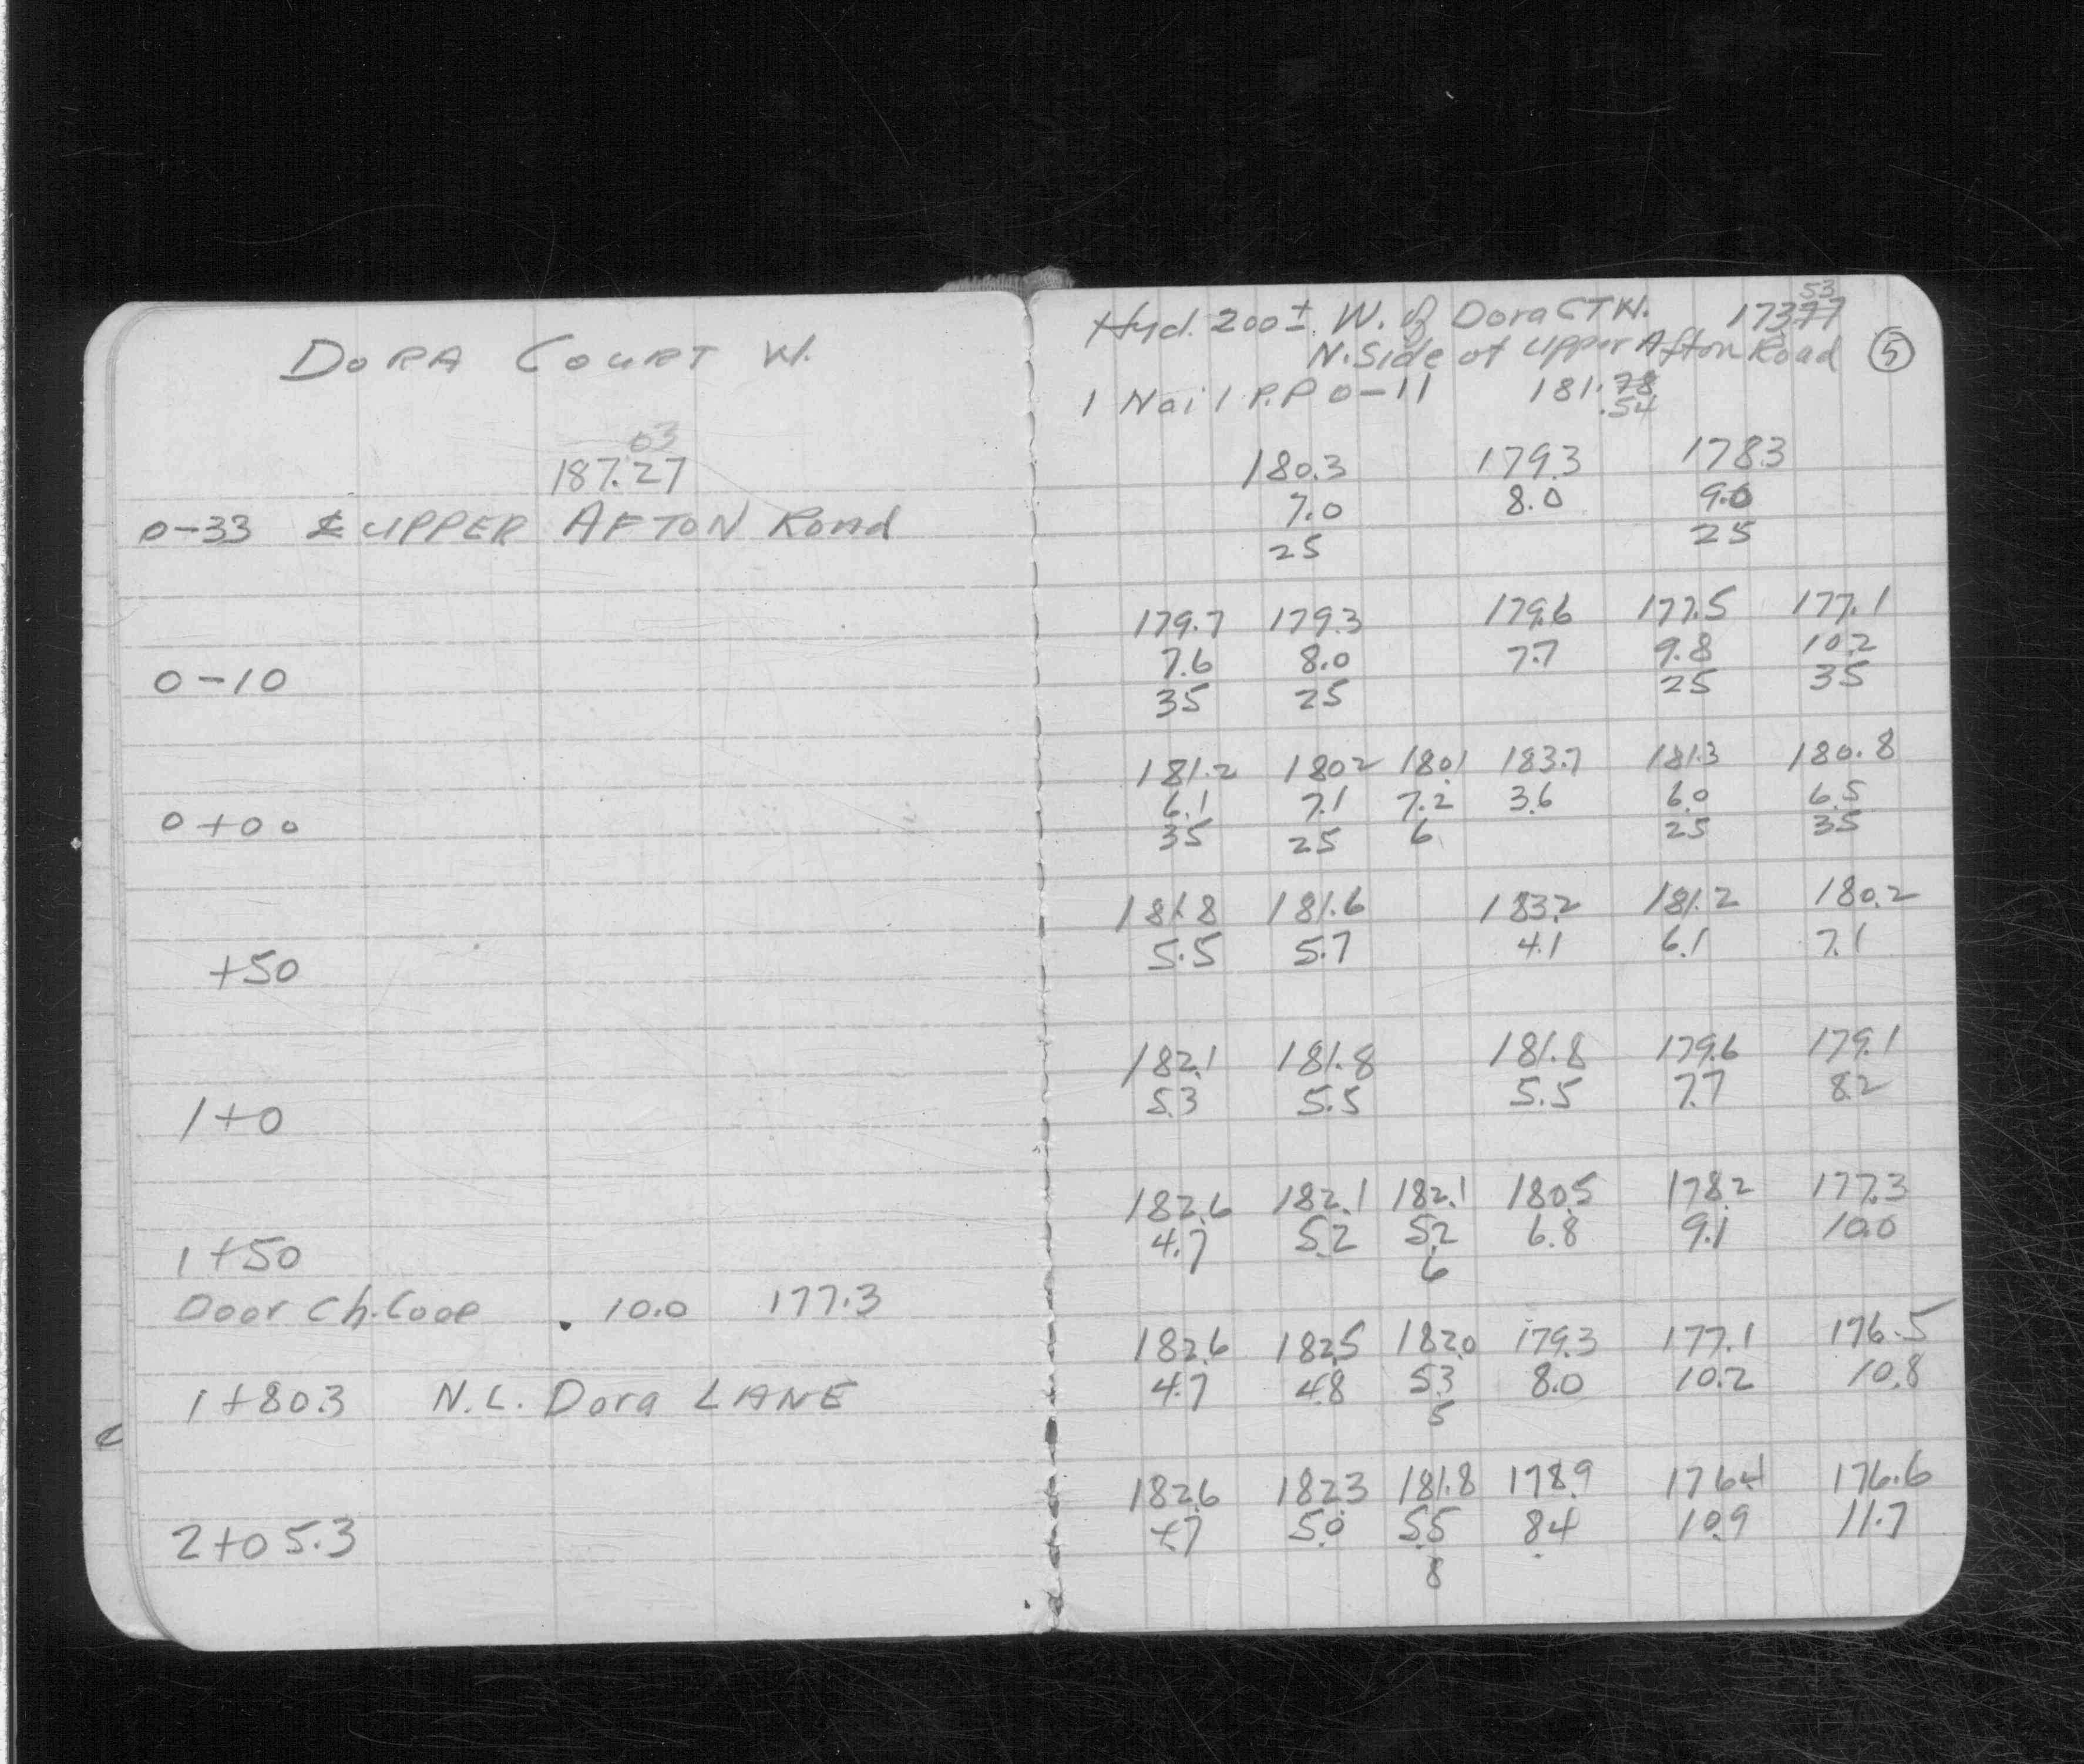 DORA COURT W.
03
187.27
0-33 ℄ UPPER AFTON Road
0-10
0+00
+50
1+0
1+50
Door Ch. Coop 10.0 177.3
1+80.3 N.L. Dora LANE
2+05.3
Hyd. 200± W. of Dora CT W. 173.77 53
N. Side of Upper Afton Road 5
1 Nail P.P 0-11 181.78
.54
180.3 179.3 178.3
7.0 8.0 9.0
25 25
179.7 179.3 179.6 177.5 177.1
7.6 8.0 7.7 9.8 10.2
35 25 25 35
181.2 180.2 180.1 183.7 181.3 180.8
6.1 7.1 7.2 3.6 6.0 6.5
35 25 6 25 35
181.8 181.6 183.2 181.2 180.2
5.5 5.7 4.1 6.1 7.1
182.1 181.8 181.8 179.6 179.1
5.3 5.5 5.5 7.7 8.2
182.6 182.1 182.1 180.5 178.2 177.3
4.7 5.2 5.2 6.8 9.1 10.0
6
182.6 182.5 182.0 179.3 177.1 176.5
4.7 4.8 5.3 8.0 10.2 10.8
5
182.6 182.3 181.8 178.9 176.4 176.6
4.7 5.0 5.5 8.4 10.9 11.7
8